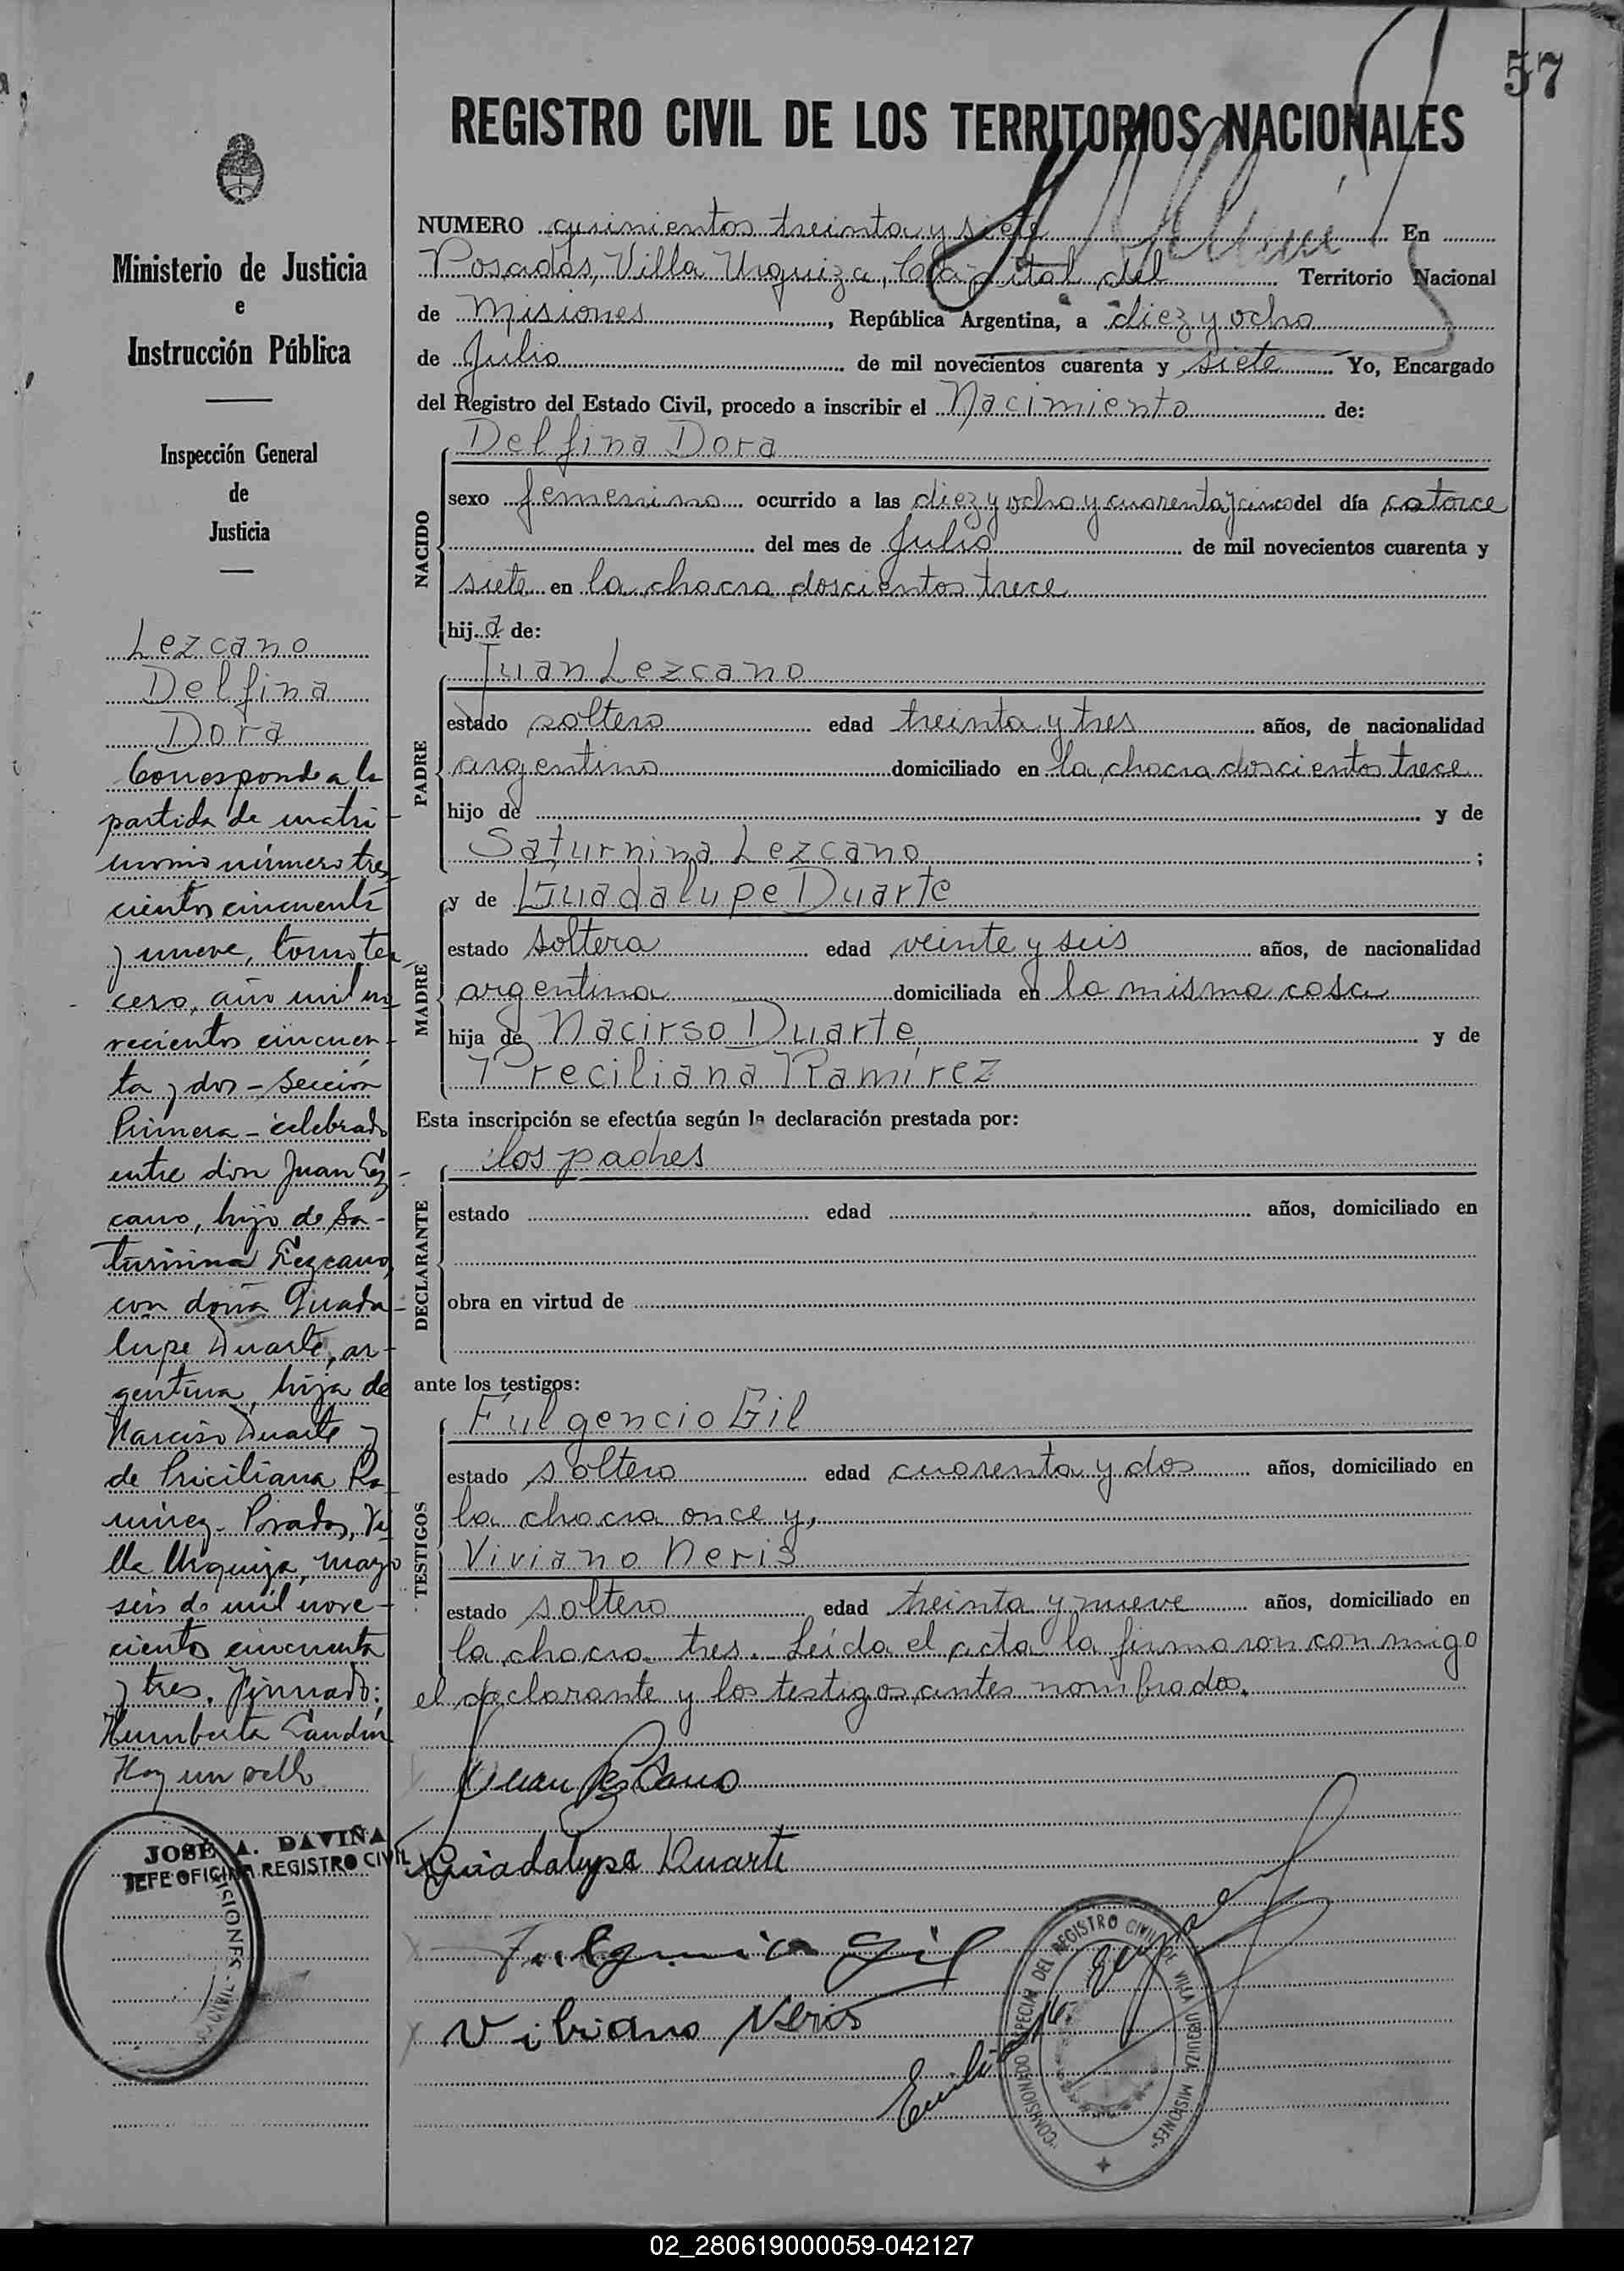 57
REGISTRO CIVIL DE LOS TERRITORIOS NACIONALES
Ministerio de Justicia
e
Instrucción Pública
Inspección General
de
Justicia
Lezcano
Delfina
Dora
Corresponde a la
partida de matri-
monio número tres
cientos cincuenta
y nueve, tomo ter-
cero, año mil no-
vecientos cincuen-
ta y dos - Sección
Primera - celebrado
entre don Juan Lez-
cano, hijo de Sa-
turnina Lezcano,
con doña Guada-
lupe Duarte, ar-
gentina, hija de
Narciso Duarte y
de Priciliana Ra-
mirez. Posadas, Vi-
lla Urquiza, mayo
seis de mil nove-
cientos cincuenta
y tres. Firmado:
Humberto
Hay un sello
JOSÉ A. DAVIÑA
JEFE OFICINA REGISTRO CIVIL
NUMERO quinientos treinta y siete En
Posadas, Villa Urquiza, Capital del Territorio Nacional
de Misiones, República Argentina, a diez y ocho
de Julio de mil novecientos cuarenta y siete Yo, Encargado
del Registro del Estado Civil, procedo a inscribir el Nacimiento de:
NACIDO
Delfina Dora
sexo femenino ocurrido a las diez y ocho y cuarenta y cinco del día catorce
del mes de Julio de mil novecientos cuarenta y
siete en la chacra doscientos trece
hij a de:
PADRE
Juan Lezcano
estado soltero edad treinta y tres años, de nacionalidad
argentino domiciliado en la chacra doscientos trece
hijo de y de
Saturnina Lezcano ;
MADRE
y de Guadalupe Duarte
estado soltera edad veinte y seis años, de nacionalidad
argentina domiciliada en la misma casa
hija de Nacirso Duarte y de
Preciliana Ramírez
Esta inscripción se efectúa según la declaración prestada por:
DECLARANTE
los padres
estado edad años, domiciliado en
obra en virtud de
ante los testigos:
TESTIGOS
Fulgencio Gil
estado soltero edad cuarenta y dos años, domiciliado en
la chacra once y,
Viviano Neris
estado soltero edad treinta y nueve años, domiciliado en
la chacra tres. Leída el acta la firmaron conmigo
el declarante y los testigos antes nombrados.
Juan Lezcano
Guadalupe Duarte
Fulgencio Gil
Vibiano Neris
COMISIONADO ESPECIAL DEL REGISTRO CIVIL DE VILLA URQUIZA MISIONES
02_280619000059-042127